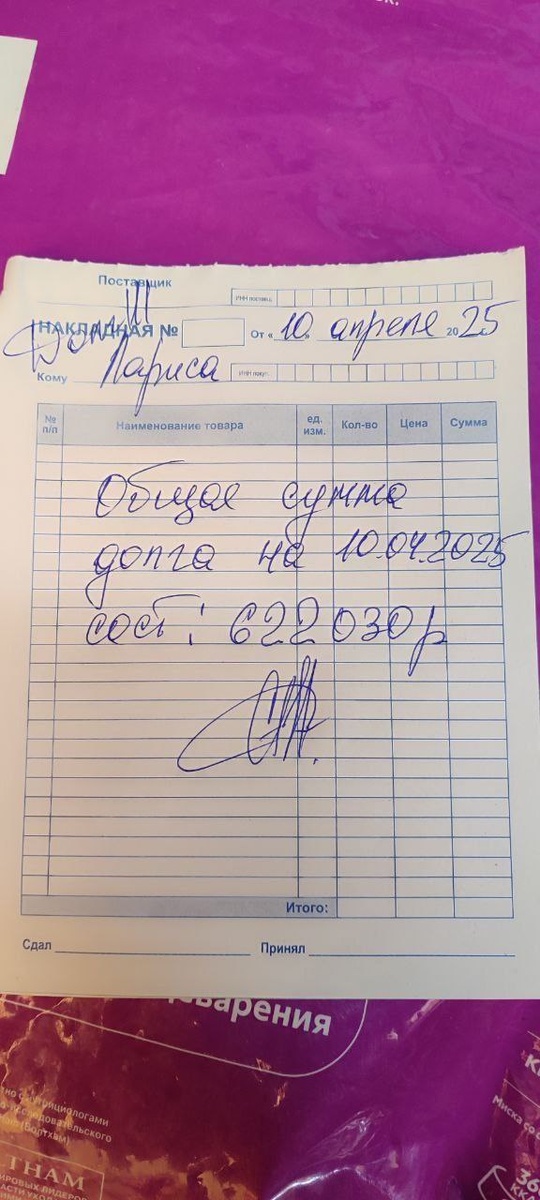 к.
Поставщик
ИНН поставщ.
НАКЛАДНАЯ № От « 10. апреля 2025
Кому Лариса ИНН покуп.
№ п/п Наименование товара ед. изм. Кол-во Цена Сумма
Общая сумма
долга на 10.04.2025
сост: 622 030 р
Итого:
Сдал Принял
варения
Миска со с
36
ККА
THAM